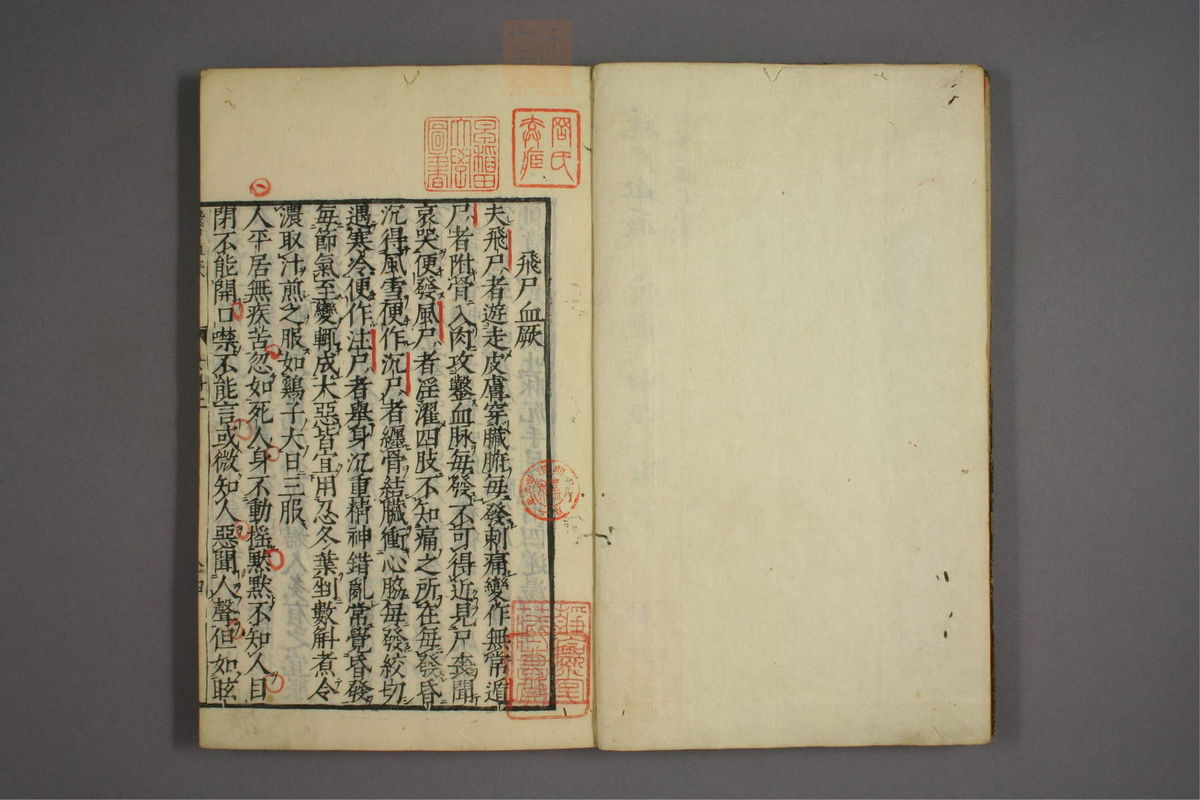 飛尸血厥
夫飛尸者遊走皮膚穿臓腑每發刺痛變作無常遁
尸者附骨入肉攻鑿血脉每發不可得近見尸喪聞
哀哭便發風尸者淫濯四肢不知痛之所在每發昏
沉得風雪便作沉尸者纏骨結臓衝心脇每發絞切
遇寒冷便作注尸者舉身沉重精神錯亂常覺昏發
每節氣至變輒成大惡皆宜用忍冬葉剉數斛煮令
濃取汁煎之服如鷄子大日三服
人平居無疾苦忽如死人身不動搖默默不知人目
閉不能開口噤不能言或微知人惡聞人聲但如眩
早稻田大學圖書